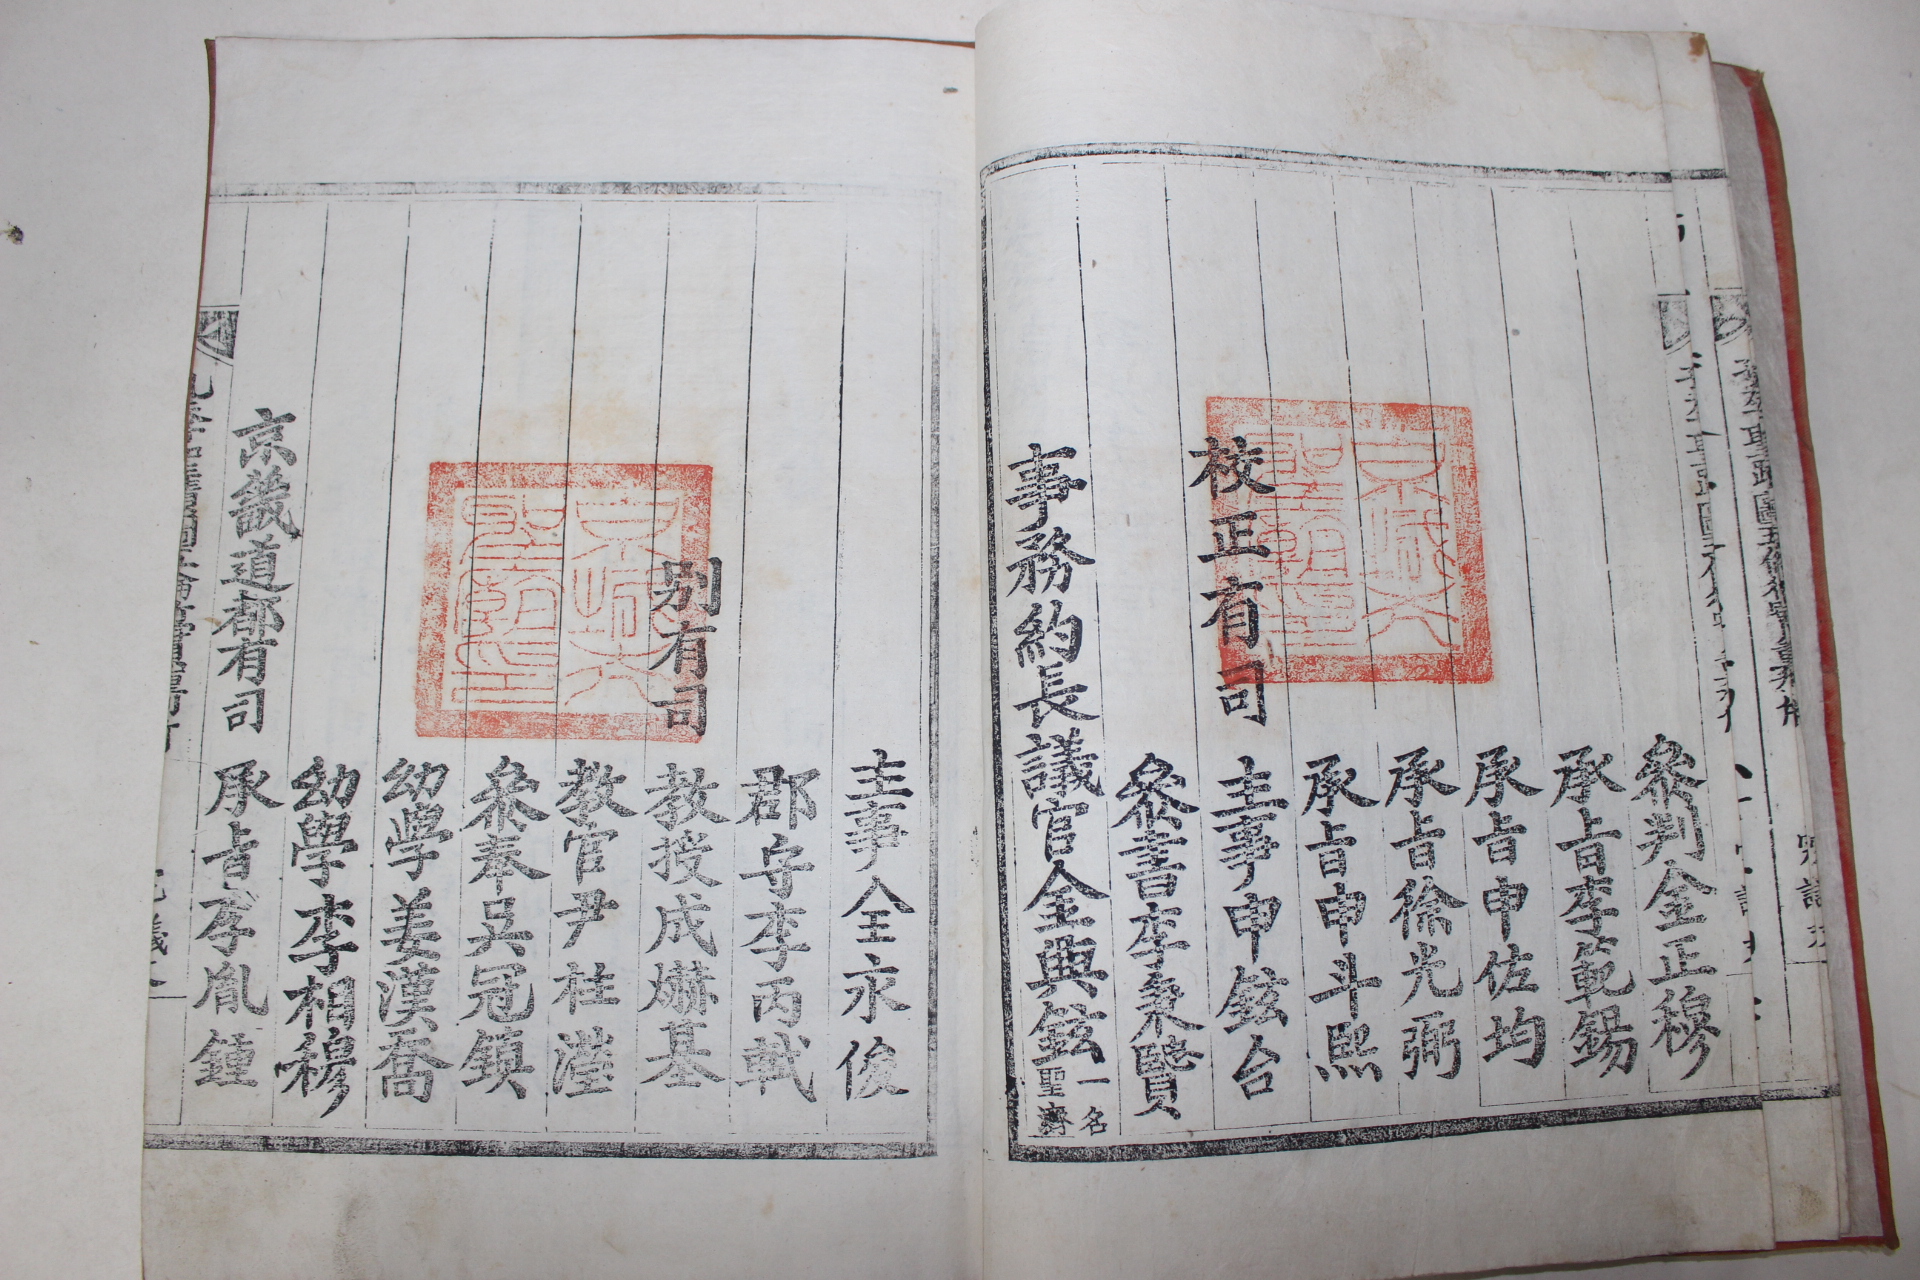 參判金正穆
承旨李範錫
承旨申佐均
承旨徐光弼
承旨申斗熙
校正有司
主事申鉉台
參書李秉賢
事務約長議官金典鉉一名聖濤
主事全永俊
郡守李丙軾
別有司
教授成爀基
教官尹柱瀅
參奉吳冠鎮
幼學姜漢喬
幼學李相穆
京畿道都有司
承旨李胤鍾